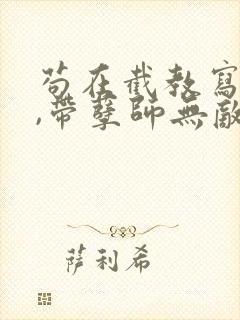 苟在截教寫
,帶孽師無敵
萨利希